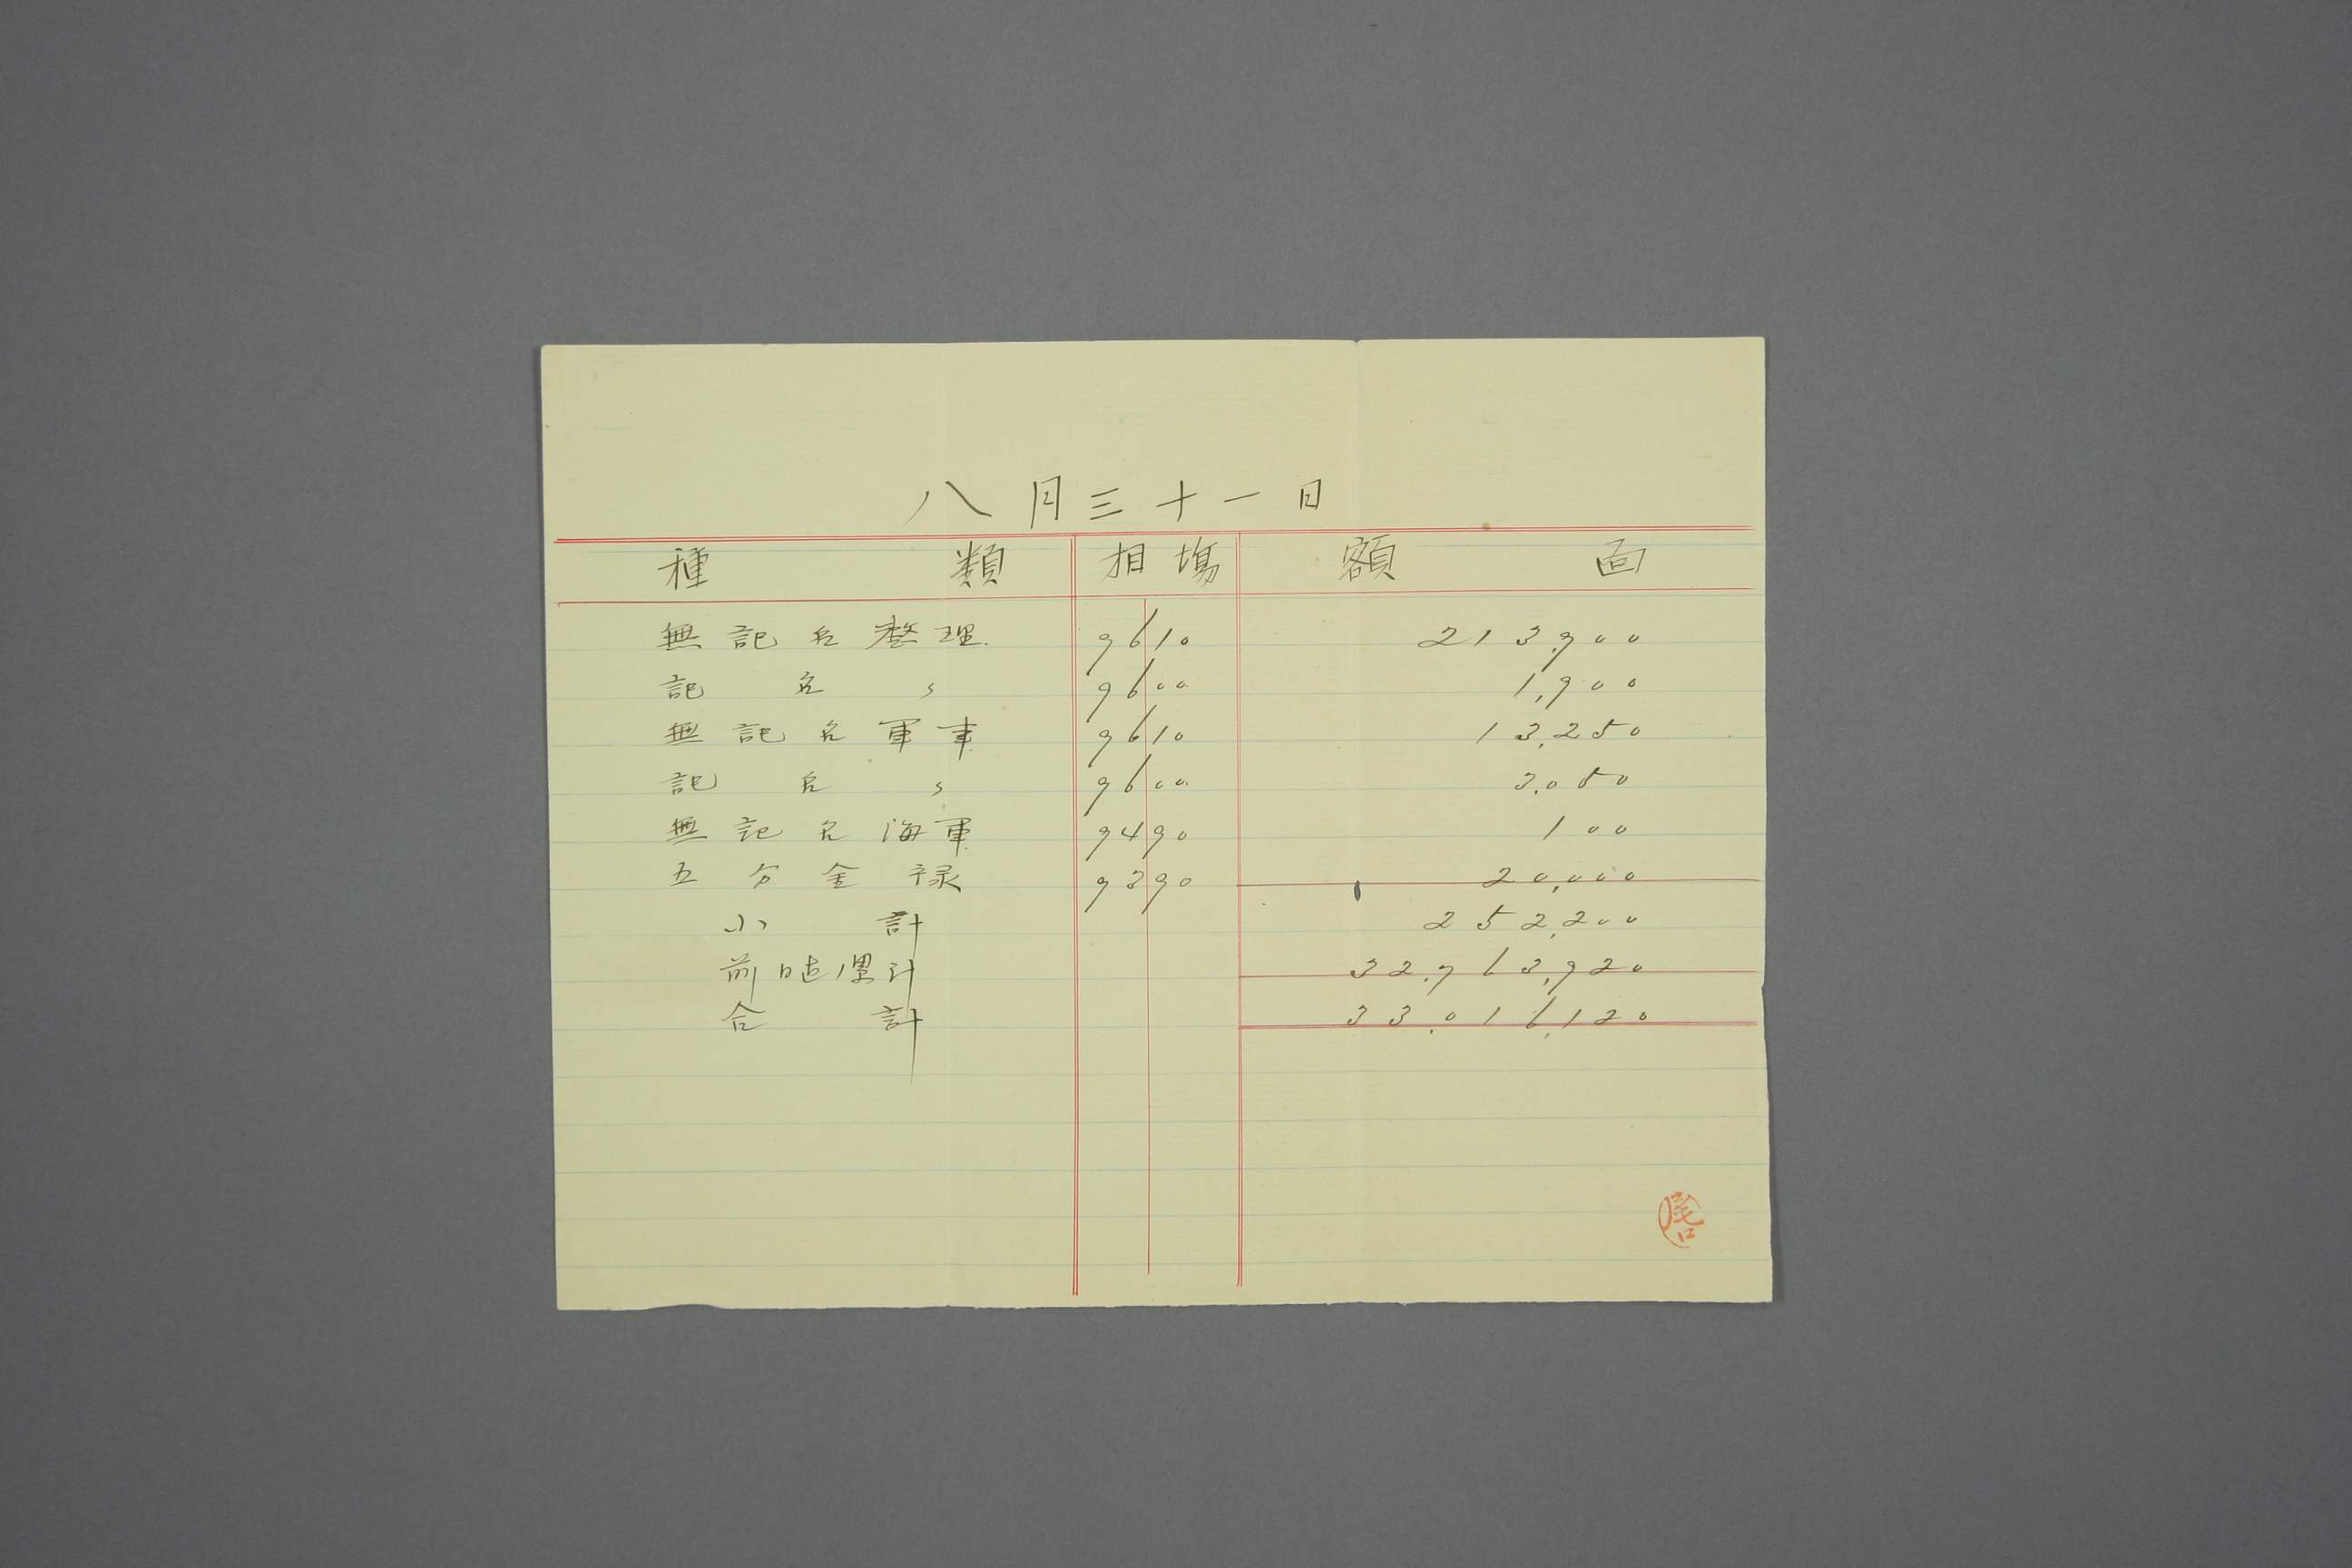 八月三十一日
種類 相場 額面
無記名整理 96 10 213,900
記名〃 96 00 1,900
無記名軍事 96 10 13,250
記名〃 96 00 3,050
無記名海軍 94 90 100
五分金禄 93 90 20,000
小計 252,200
前日迄累計 32,763,920
合計 33,016,120
尾口